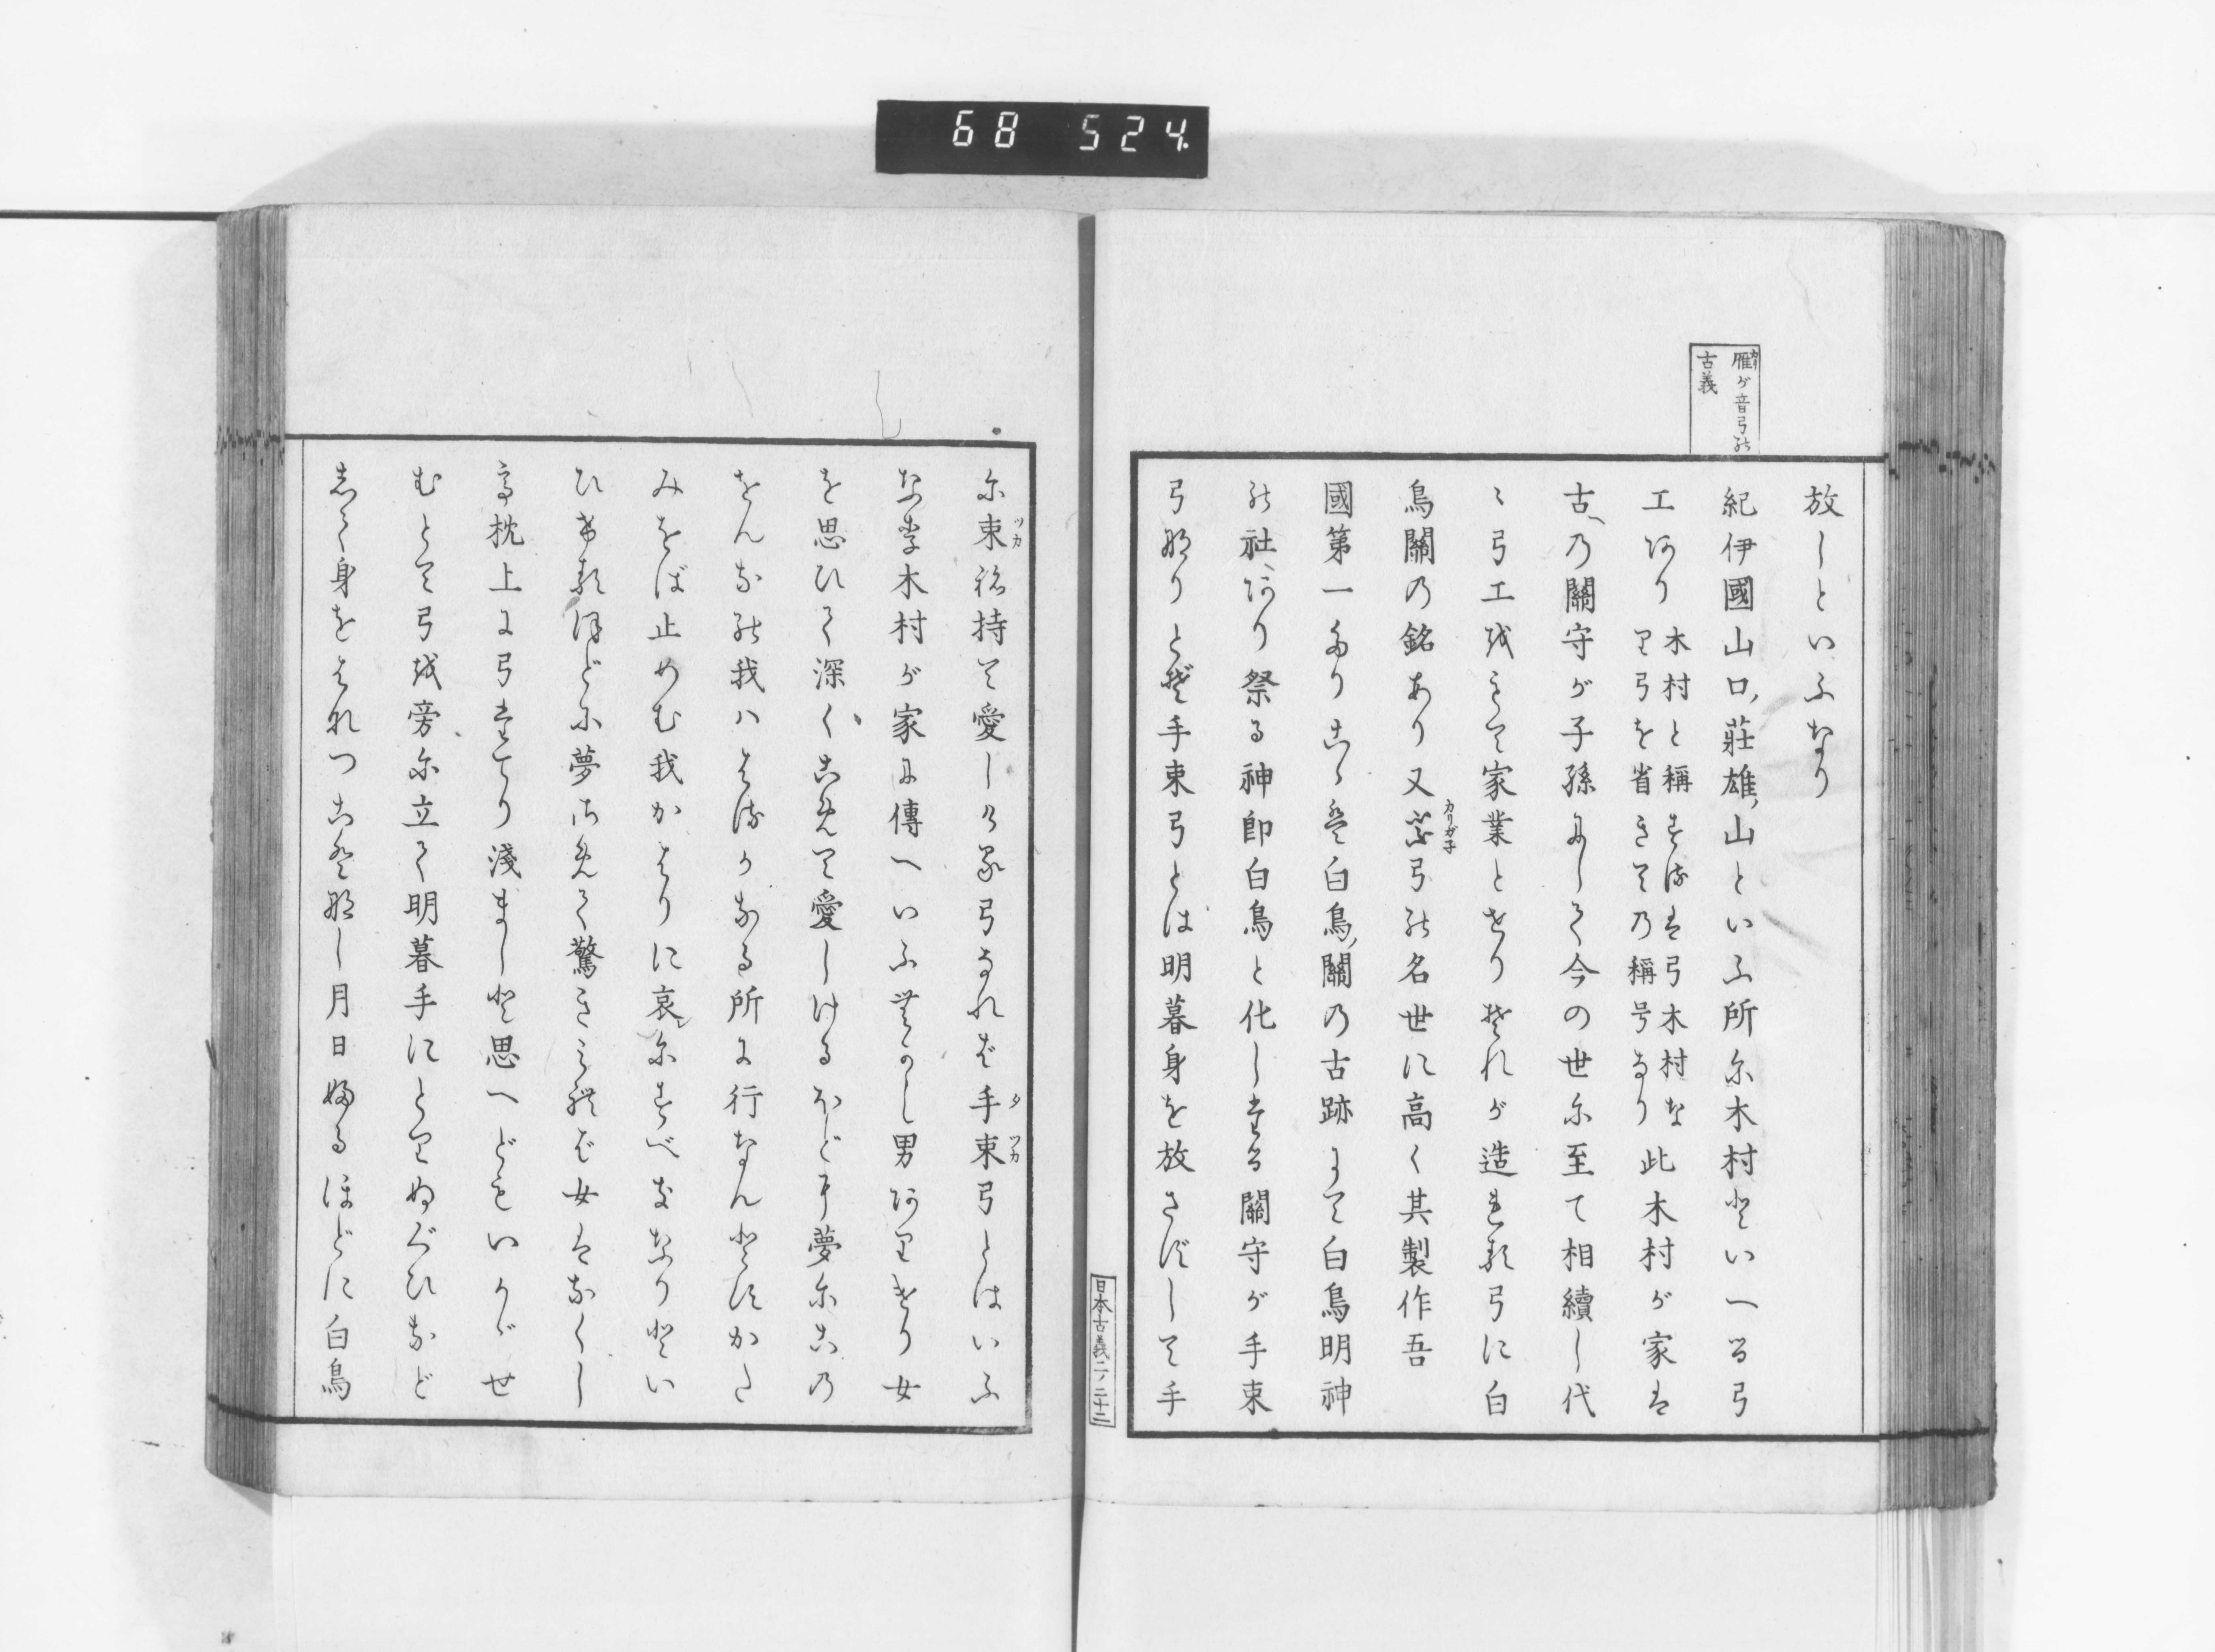 68 524.
雁が音弓の
古義
放しといふなり
紀伊國山口莊雄山といふ所に木村といへる弓
工あり
木村と稱するは弓木村な
り弓を省きての稱号なり
此木村が家は
古の關守が子孫にして今の世に至て相續し代
〻弓工をもて家業とせりそれが造れる弓に白
鳥關の銘あり又弓の名世に高く其製作吾
カリガネ
國第一なりこゝは白鳥關の古跡にて白鳥明神
の社あり祭る神即白鳥と化したる關守が手束
弓なりとぞ手束弓とは明暮身を放さずして手
日本古義二ノ二十二
に束ね持て愛しける弓なれば手束弓とはいふ
ツカ
タツカ
なり木村が家に傳へいふむかし男ありけり女
を思ひて深くこめて愛しけるほどに夢にこの
をんなの我ハはるかなる所に行なんとすかた
みをば止めむ我かはりに哀にすべきなりとい
ひけるほどに夢さめて驚きみれば女はなくし
て枕上に弓たてり淺ましと思へどもいかゞせ
むとて弓を旁に立て明暮手にとりぬぐひなど
しく身をはなれつことなし月日ふるほどに白鳥